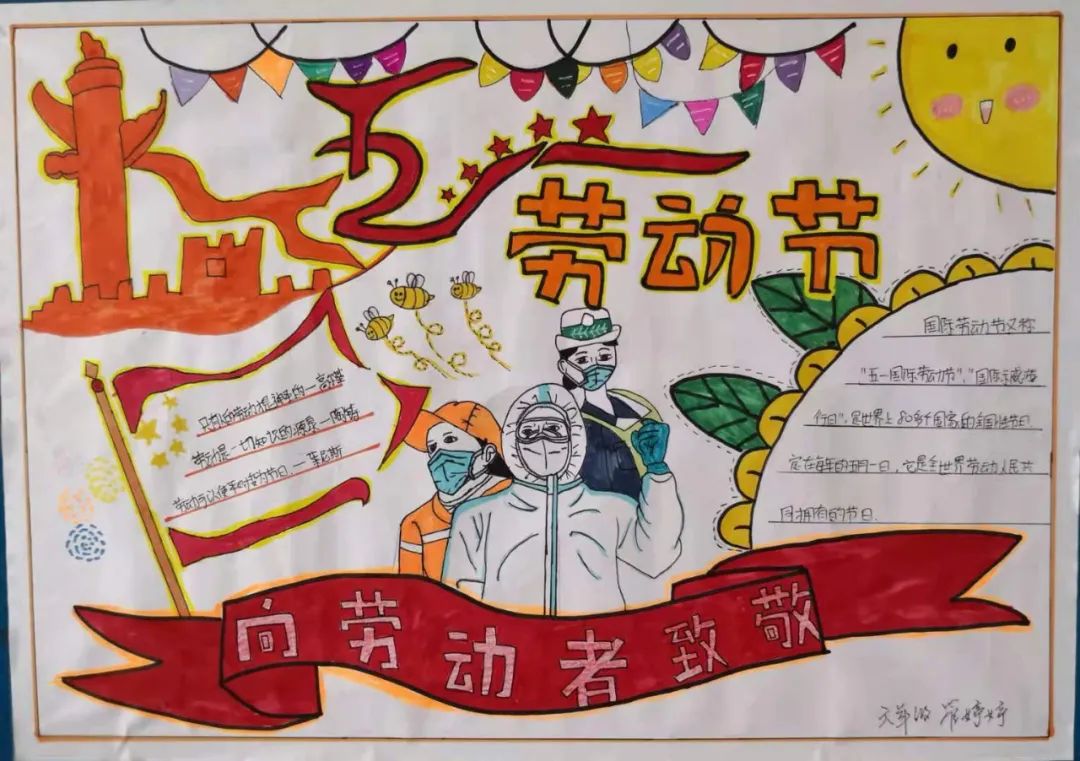 五一
劳动节
只有人的劳动才是神圣的一高尔基
劳动是一切知识的源泉一陶铸
国际劳动节又称
"五一国际劳动节","国际示威游
行日",是世界上80多个国家的全国性节日.
定在每年的五月一日.它是全世界劳动人民共
同拥有的节日.
向劳动者致敬
婷婷